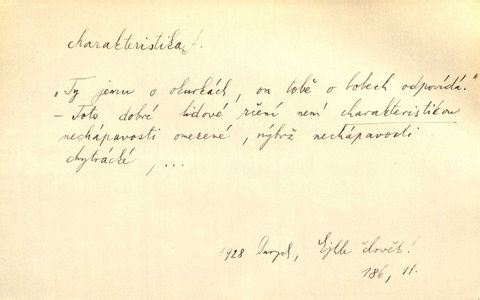 charakteristika, f.
„Ty jemu o okurkách, on tobě o bobech odpovídá.“
– Toto dobré lidové rčení není charakteristikou
nechápavosti omezené, nýbrž nechápavosti
chytrácké, ...
1928 Durych, Ejhle člověk!
186, 11.